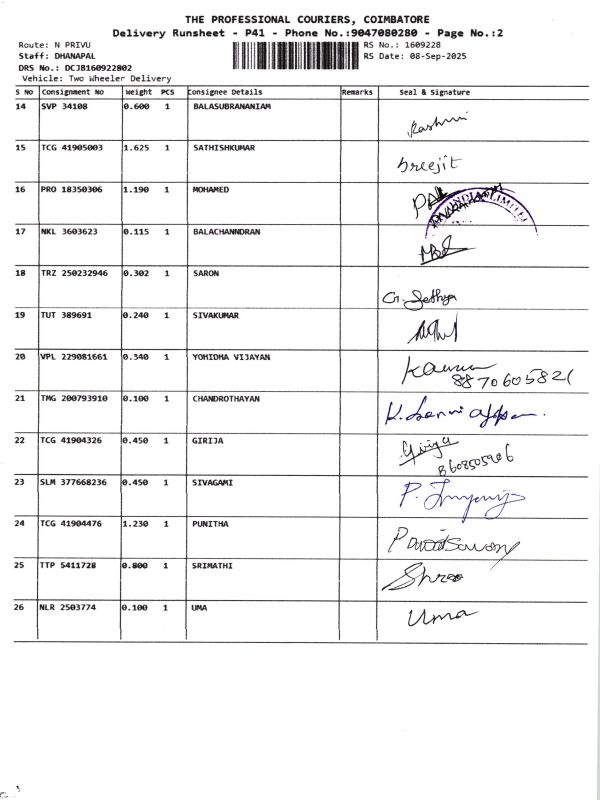 THE PROFESSIONAL COURIERS, COIMBATORE
Delivery Runsheet - P41 - Phone No.:9047080280 - Page No.:2
Route: N PRIVU RS No.: 1609228
Staff: DHANAPAL RS Date: 08-Sep-2025
DRS No.: DCJB160922802
Vehicle: Two Wheeler Delivery
S No Consignment No Weight PCS Consignee Details Remarks Seal & Signature
14 SVP 34108 0.600 1 BALASUBRANANIAM Rashmi
15 TCG 41905003 1.625 1 SATHISHKUMAR Sreejit
16 PRO 18350306 1.190 1 MOHAMED
17 NKL 3603623 0.115 1 BALACHANNDRAN
18 TRZ 250232946 0.302 1 SARON G. Sethya
19 TUT 389691 0.240 1 SIVAKUMAR
20 VPL 229081661 0.340 1 YOHIDHA VIJAYAN
8870605821
21 TMG 200793910 0.100 1 CHANDROTHAYAN
22 TCG 41904326 0.450 1 GIRIJA Girija
8608505906
23 SLM 377668236 0.450 1 SIVAGAMI
24 TCG 41904476 1.230 1 PUNITHA
25 TTP 5411728 0.800 1 SRIMATHI Shree
26 NLR 2503774 0.100 1 UMA Uma